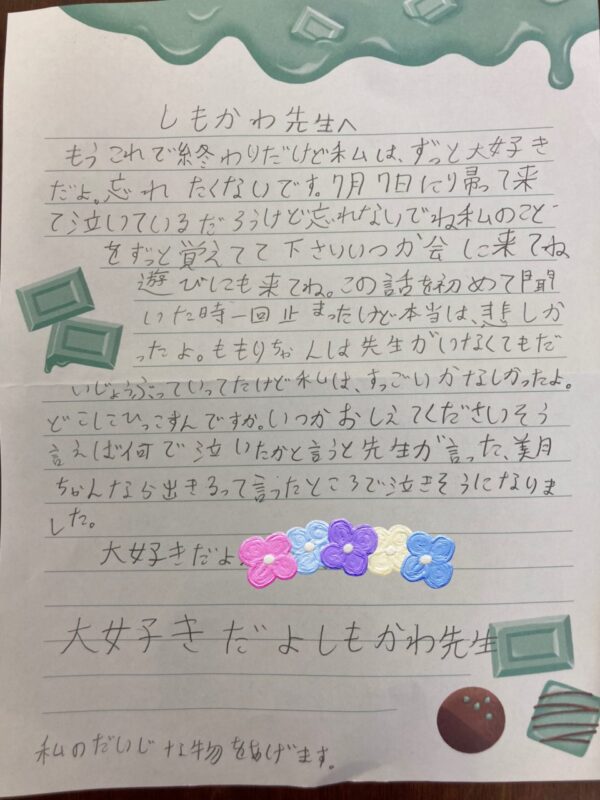 しもかわ先生へ
もうこれで終わりだけど私は、ずっと大好き
だよ。忘れたくないです。7月7日にり帰って来
て泣いているだろうけど忘れないでね私のこと
をずっと覚えてて下さいいつか会しに来てね
遊びにも来てね。この話を初めて聞
いた時一回止まったけど本当は、悲しか
ったよ。ももりちゃんは先生がいなくてもだ
いじょうぶっていってたけど私は、すっごいかなしかったよ。
どこしてひっこすんですか。いつかおしえてくださいそう
言えば何で泣いたかと言うと先生が言った、美月
ちゃんなら出きるって言ったところで泣きそうになりま
した。
大好きだよ
大好きだよしもかわ先生
私のだいじな物をあげます。